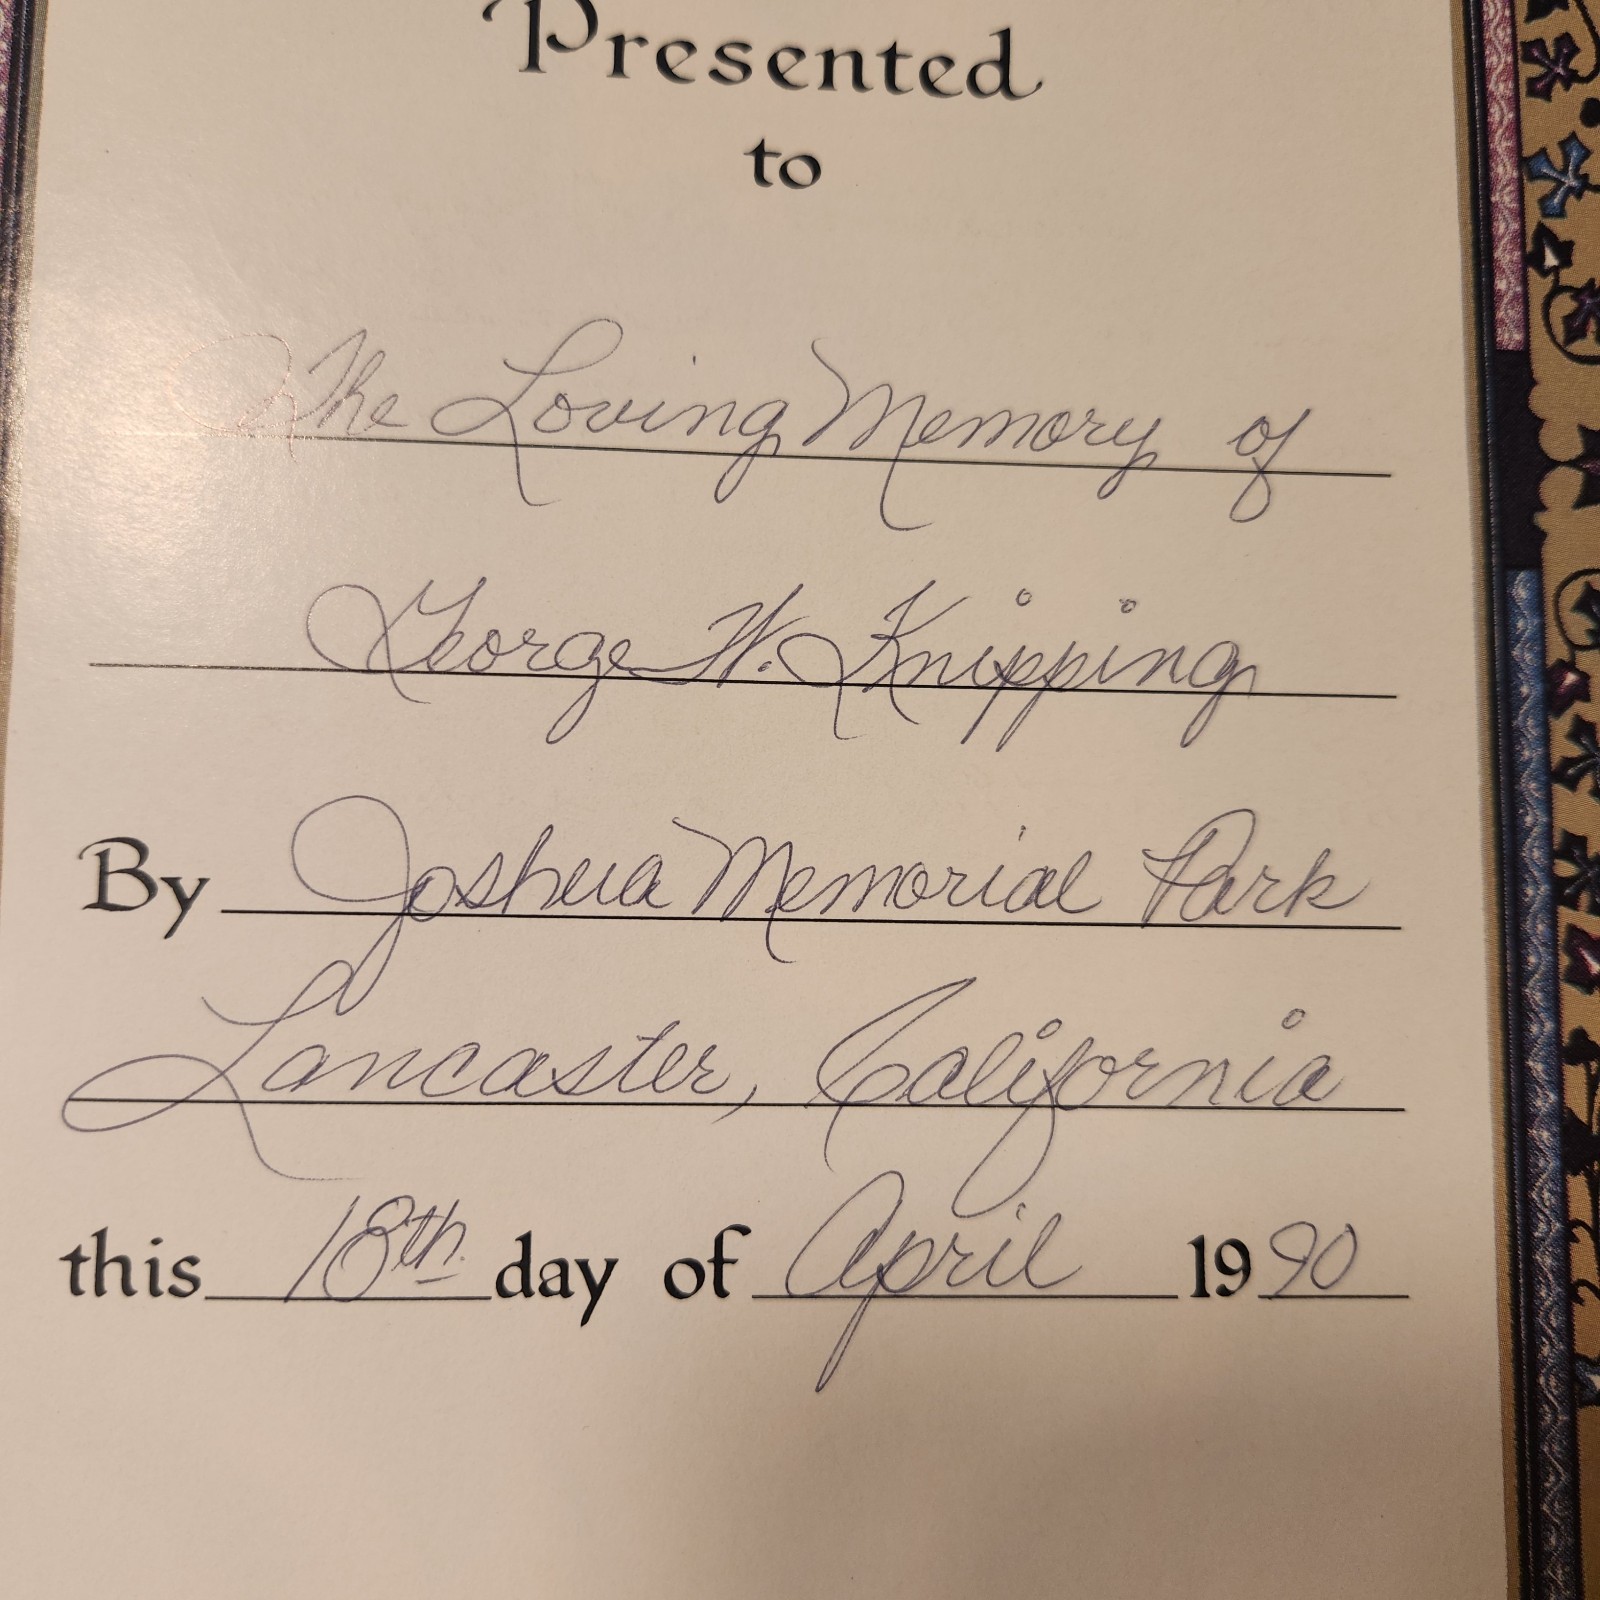 Presented
to
The Loving Memory of
George W. Knipping
By Joshua Memorial Park
Lancaster, California
this 18th day of April 1990